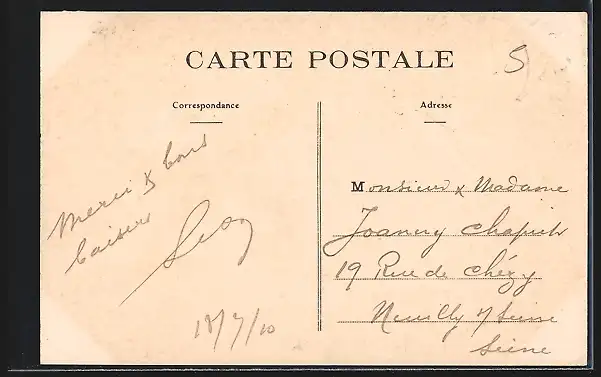 CARTE POSTALE
5
Correspondance
Adresse
Merci & bons
baisers
18/7/10
Monsieur & Madame
Joanny
19 Rue de Chézy
Neuilly s/ Seine
Seine